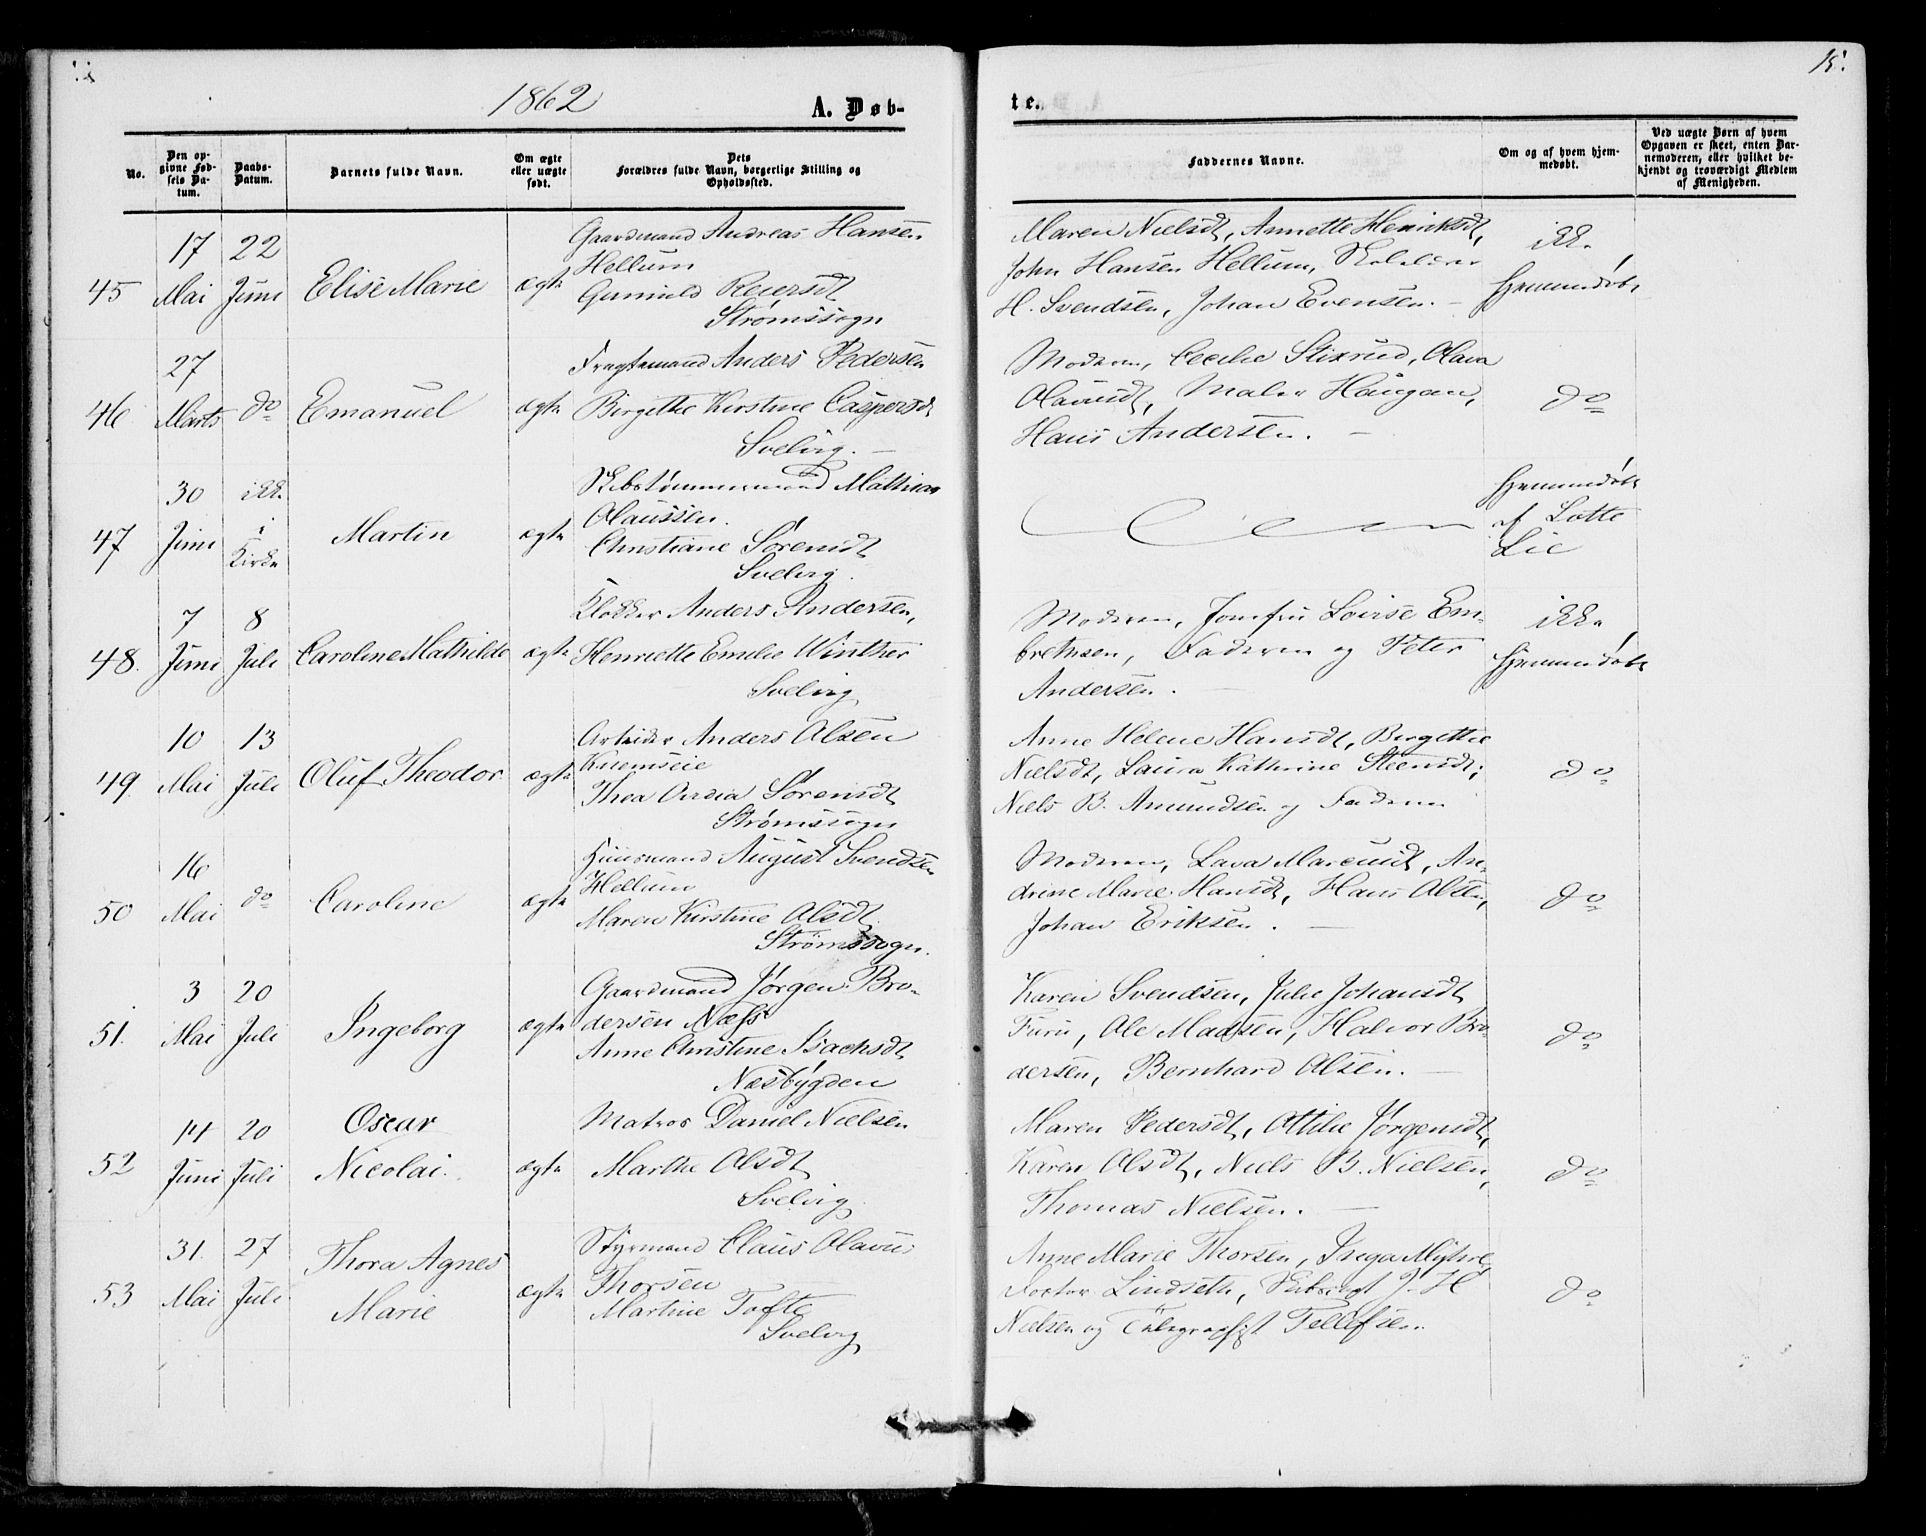 1862
A. Døb-
te.
15.
No.
Den op-
givne Fød-
sels Da-
tum.
Daabs-
Datum.
Barnets fulde Navn.
Om ægte
eller uægte
født.
Dets
Forældres fulde Navn, borgerlige Stilling og
Opholdssted.
Faddernes Navne.
Om og af hvem hjem-
medøbt.
Ved uægte Børn af hvem
Opgaven er skeet, enten Bar-
nemoderen, eller hvilket be-
kjendt og troværdigt Medlem
af Menigheden.
45
17
Mai
22
Juni
Elise Marie
ægte
Gaardmand Andreas Hansen
Hellum
Gunnild Reiersdt
Strømssogn
Maren Nielsdt, Annette Henriksdt,
John Hansen Hellum, Skolelærer
H. Svendsen, Johan Evensen. -
ikke
hjemmedøbt
46
27
Marts
do
Emanuel
ægte
Fragtemand Anders Pedersen
Birgithe Kirstine Caspersdt
Svelvig. -
Moderen, Cecilie Stixrud, Olava
Olavusdt, Maler Haugan,
Hans Andersen. -
do
47
30
Juni
ikke
i
Kirke
Martin
ægte
Skibstømmermand Mathias
Olaussen.
Christiane Sørensdt
Svelvig.
hjemmedøbt
af Lotte
Lie
48.
7
Juni
8
Juli
Caroline Mathilde
ægte
Klokker Anders Andersen,
Henriette Emilie Winther
Svelvig
Moderen, Jomfru Lovise Em-
brethsen, Faderen og Peter
Andersen. -
ikke
hjemmedøbt
49.
10
Mai
13
Juli
Oluf Theodor
ægte
Arbeider Anders Olsen
Knemseie
Thea Sørensdt
Strømssogn
Anne Helene Hansdt, Birgitthe
Nielsdt, Laura Kathrine Steensdt,
Niels B. Amundsen og Faderen
do
50
16
Mai
do
Caroline
ægte
Huusmand August Svendsen
Hellum
Maren Kirstine Olsdt
Strømssogn.
Moderen, Lava Marcusdt, An-
drine Marie Hansdt, Hans Olsen,
Johan Eriksen. -
do
51.
3
Mai
20
Juli
Ingeborg
ægte
Gaardmand Jørgen Bro-
dersen Næss
Anne Christine Isachsdt
Næsbygden
Karen Svendsen, Julie Johansdt
Furu, Ole Madsen, Halvor Bro-
dersen, Bernhard Olsen. -
do
52
14
Juni
20
Juli
Oscar
Nicolai.
ægte
Matros Daniel Nielsen
Marthe Olsdt
Svelvig
Maren Pedersdt, Ottilie Jørgensdt,
Karen Olsdt, Niels B. Nielsen,
Thomas Nielsen. -
do
53
31.
Mai
27
Juli
Thora Agnes
Marie
ægte
Styrmand Claus Olavus
Thorsen
Martine Tofte
Svelvig
Anne Marie Thorsen, Inga Myhre,
Doctor Lindseth, J. H
Nielsen og Telegrafist Tellefsen.
do